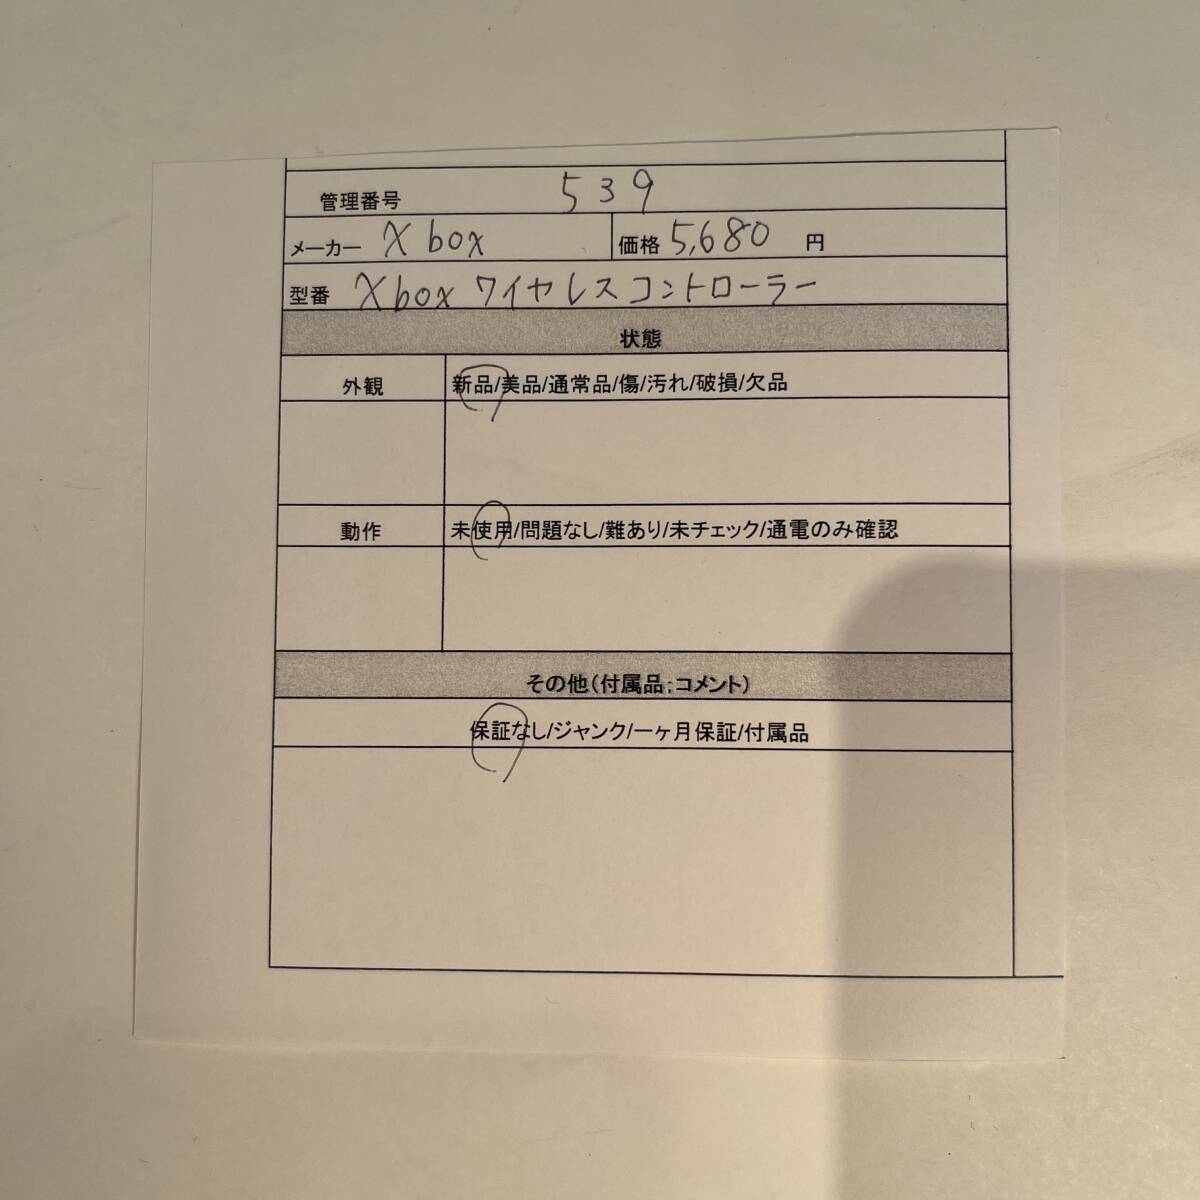 管理番号 539
メーカー Xbox 価格 5,680 円
型番 Xbox ワイヤレスコントローラー
状態
外観 新品/美品/通常品/傷/汚れ/破損/欠品
動作 未使用/問題なし/難あり/未チェック/通電のみ確認
その他(付属品;コメント)
保証なし/ジャンク/一ヶ月保証/付属品